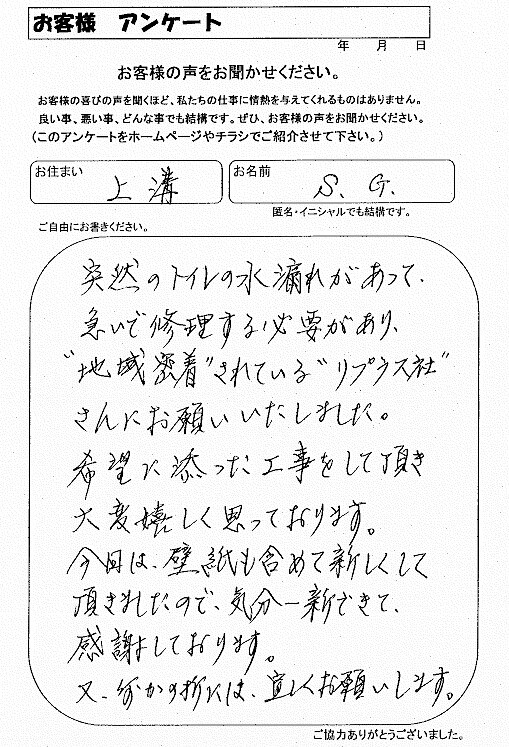 お客様 アンケート
年 月 日
お客様の声をお聞かせください。
お客様の喜びの声を聞くほど、私たちの仕事に情熱を与えてくれるものはありません。
良い事、悪い事、どんな事でも結構です。ぜひ、お客様の声をお聞かせください。
(このアンケートをホームページやチラシでご紹介させて下さい。)
お住まい 上溝
お名前 S. G.
匿名・イニシャルでも結構です。
ご自由にお書きください。
突然のトイレの水漏れがあって、
急いで修理する必要があり、
"地域密着"されている"リプラス社"
さんにお願いいたしました。
希望に添った工事をして頂き
大変嬉しく思っております。
今回は、壁紙も含めて新しくして
頂きましたので、気分一新できて、
感謝しております。
又、何かの折には、宜しくお願いします。
ご協力ありがとうございました。